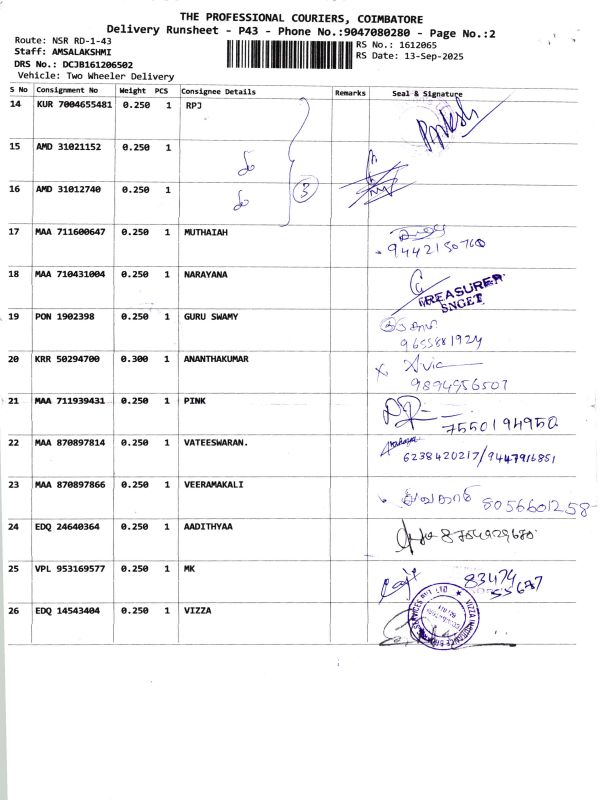 THE PROFESSIONAL COURIERS, COIMBATORE
Delivery Runsheet - P43 - Phone No.:9047080280 - Page No.:2
Route: NSR RD-1-43
RS No.: 1612065
Staff: AMSALAKSHMI
RS Date: 13-Sep-2025
DRS No.: DCJB161206502
Vehicle: Two Wheeler Delivery
S No Consignment No Weight PCS Consignee Details Remarks Seal & Signature
14 KUR 7004655481 0.250 1 RPJ
15 AMD 31021152 0.250 1
16 AMD 31012740 0.250 1
3
17 MAA 711600647 0.250 1 MUTHAIAH
9442150760
18 MAA 710431004 0.250 1 NARAYANA
TREASURER
SNGET
19 PON 1902398 0.250 1 GURU SWAMY
9655881924
20 KRR 50294700 0.300 1 ANANTHAKUMAR
9894956507
21 MAA 711939431 0.250 1 PINK
7550194950
22 MAA 870897814 0.250 1 VATEESWARAN.
6238420217/9447916851
23 MAA 870897866 0.250 1 VEERAMAKALI
8056601258
24 EDQ 24640364 0.250 1 AADITHYAA
25 VPL 953169577 0.250 1 MK
83474
55687
26 EDQ 14543404 0.250 1 VIZZA